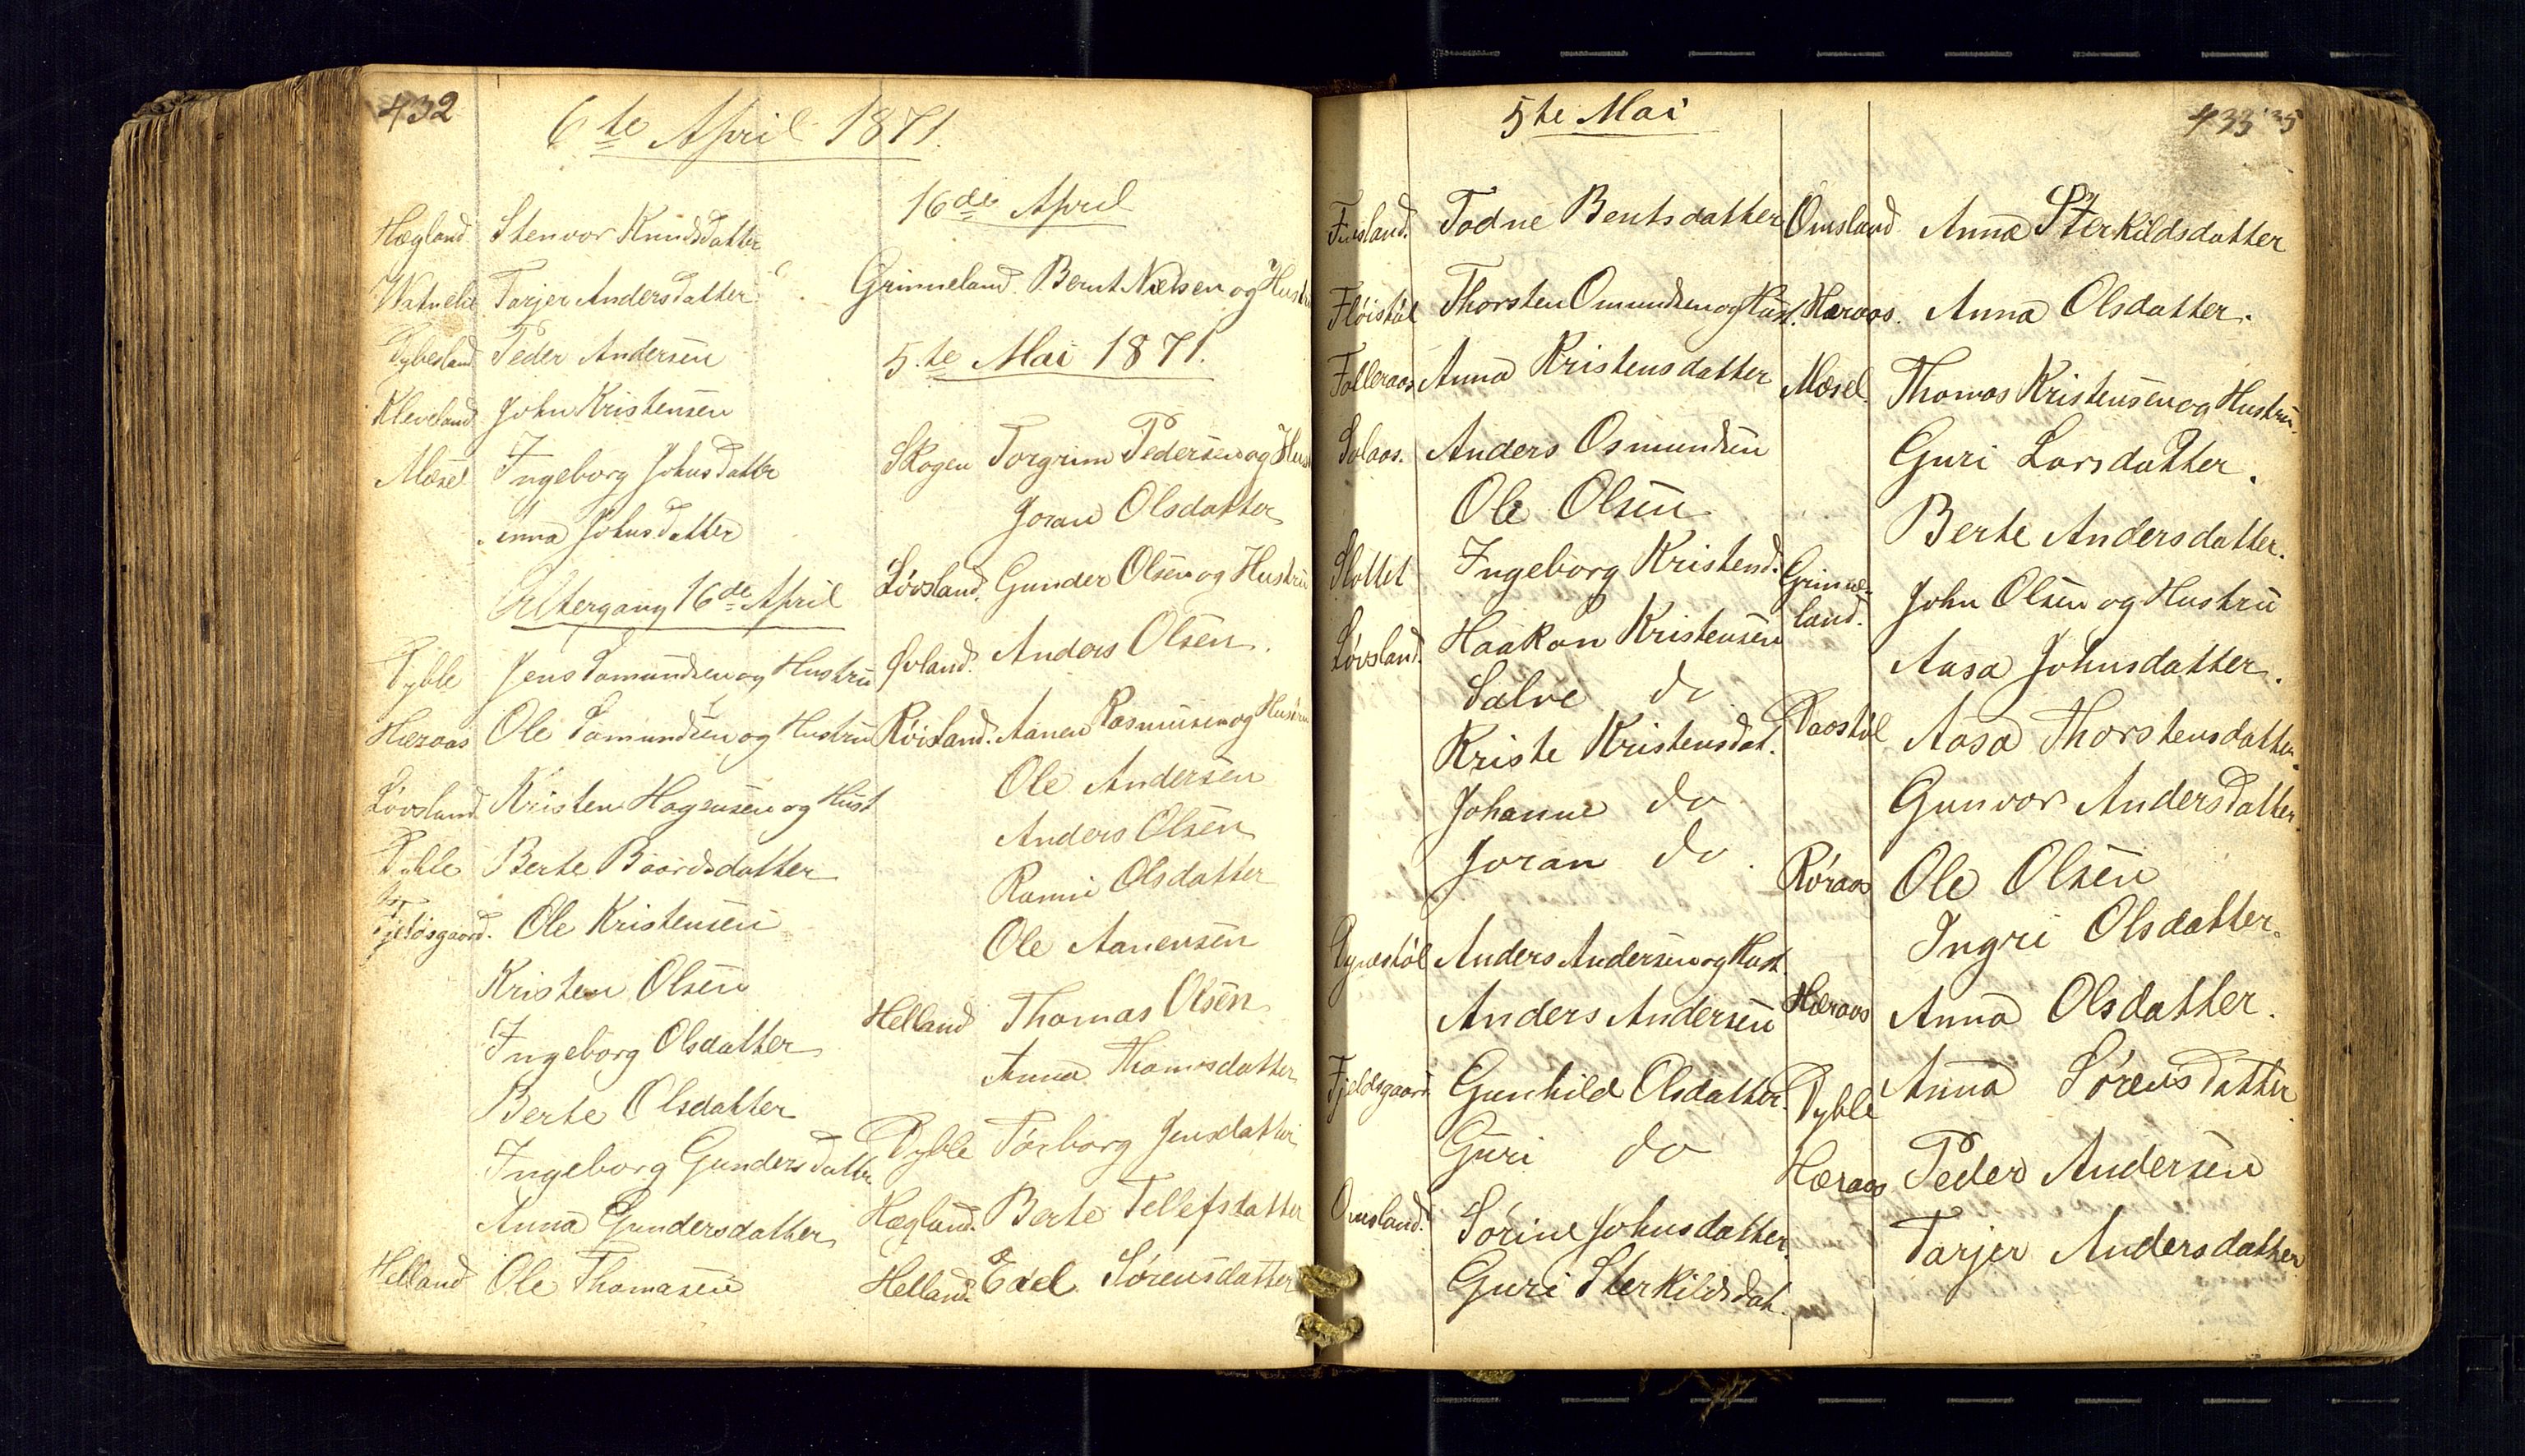 432
6te April 1871.
Hægland Stenvor Knudsdatter
Watnelie Tarjer Andersdatter
Dybesland Peder Andersen
Kleveland John Kristensen
Mæsel Ingeborg Johnsdatter
Anna Johnsdatter
Altergang 16de April
Dyble Jens Tomundsen og Hustru
Hæraas Ole Tomundsen og Hustru
Løvsland Kristen Hagensen og Hust
Dyble Berte Baardsdatter
Fjeldsgaard. Ole Kristensen
Kristen Olsen
Ingeborg Olsdatter
Berte Olsdatter
Ingeborg Gundersdatter
Anna Gundersdatter
Helland Ole Thomasen
16de April
Grimeland Bernt Nielsen og Hustru
5.te Mai 1871.
Skogen Torgrim Pedersen og Hus
Joran Olsdatter
Løvsland. Gunder Olsen og Hustru
Øvland. Anders Olsen.
Røisland. Aanen Rasmussen og Hustru
Ole Andersen
Anders Olsen
Rami Olsdatter
Ole Aanensen
Helland Thomas Olsen
Anna Thomasdatter
Dyble Torborg Jensdatter
Hægland. Berte Tellefsdatter
Helland. Edel Sørensdatter
5te Mai
433
Fusland. Todne Bentsdatter
Fløistøl Thorsten Omundsen og Hust.
Folleraas Anna Kristensdatter
Solaas. Anders Osmundsen
Ole Olsen
Slottet Ingeborg Kristensd.
Løvsland. Haakon Kristensen
Salve do
Kriste Kristensdat.
Johanne do
Joran do.
Dynestøl Anders Andersen og Hust.
Anders Andersen
Fjeldsgaard Gunhild Olsdatter.
Guri do
Omsland. Sørine Johnsdatter.
Guri Sterkildsdat.
Omsland Anna Sterkildsdatter
Hæraas. Anna Olsdatter.
Mæsel. Thomas Kristensen og Hustru.
Guri Larsdatter.
Berte Andersdatter.
Grime-
land. John Olsen og Hustru
Aasa Johnsdatter.
Daastøl Aasa Thorstensdatter.
Gunvor Andersdatter.
Røraas Ole Olsen
Ingri Olsdatter.
Hæraas Anna Olsdatter.
Dyble Anna Sørensdatter
Hæraas Peder Andersen
Tarjer Andersdatter